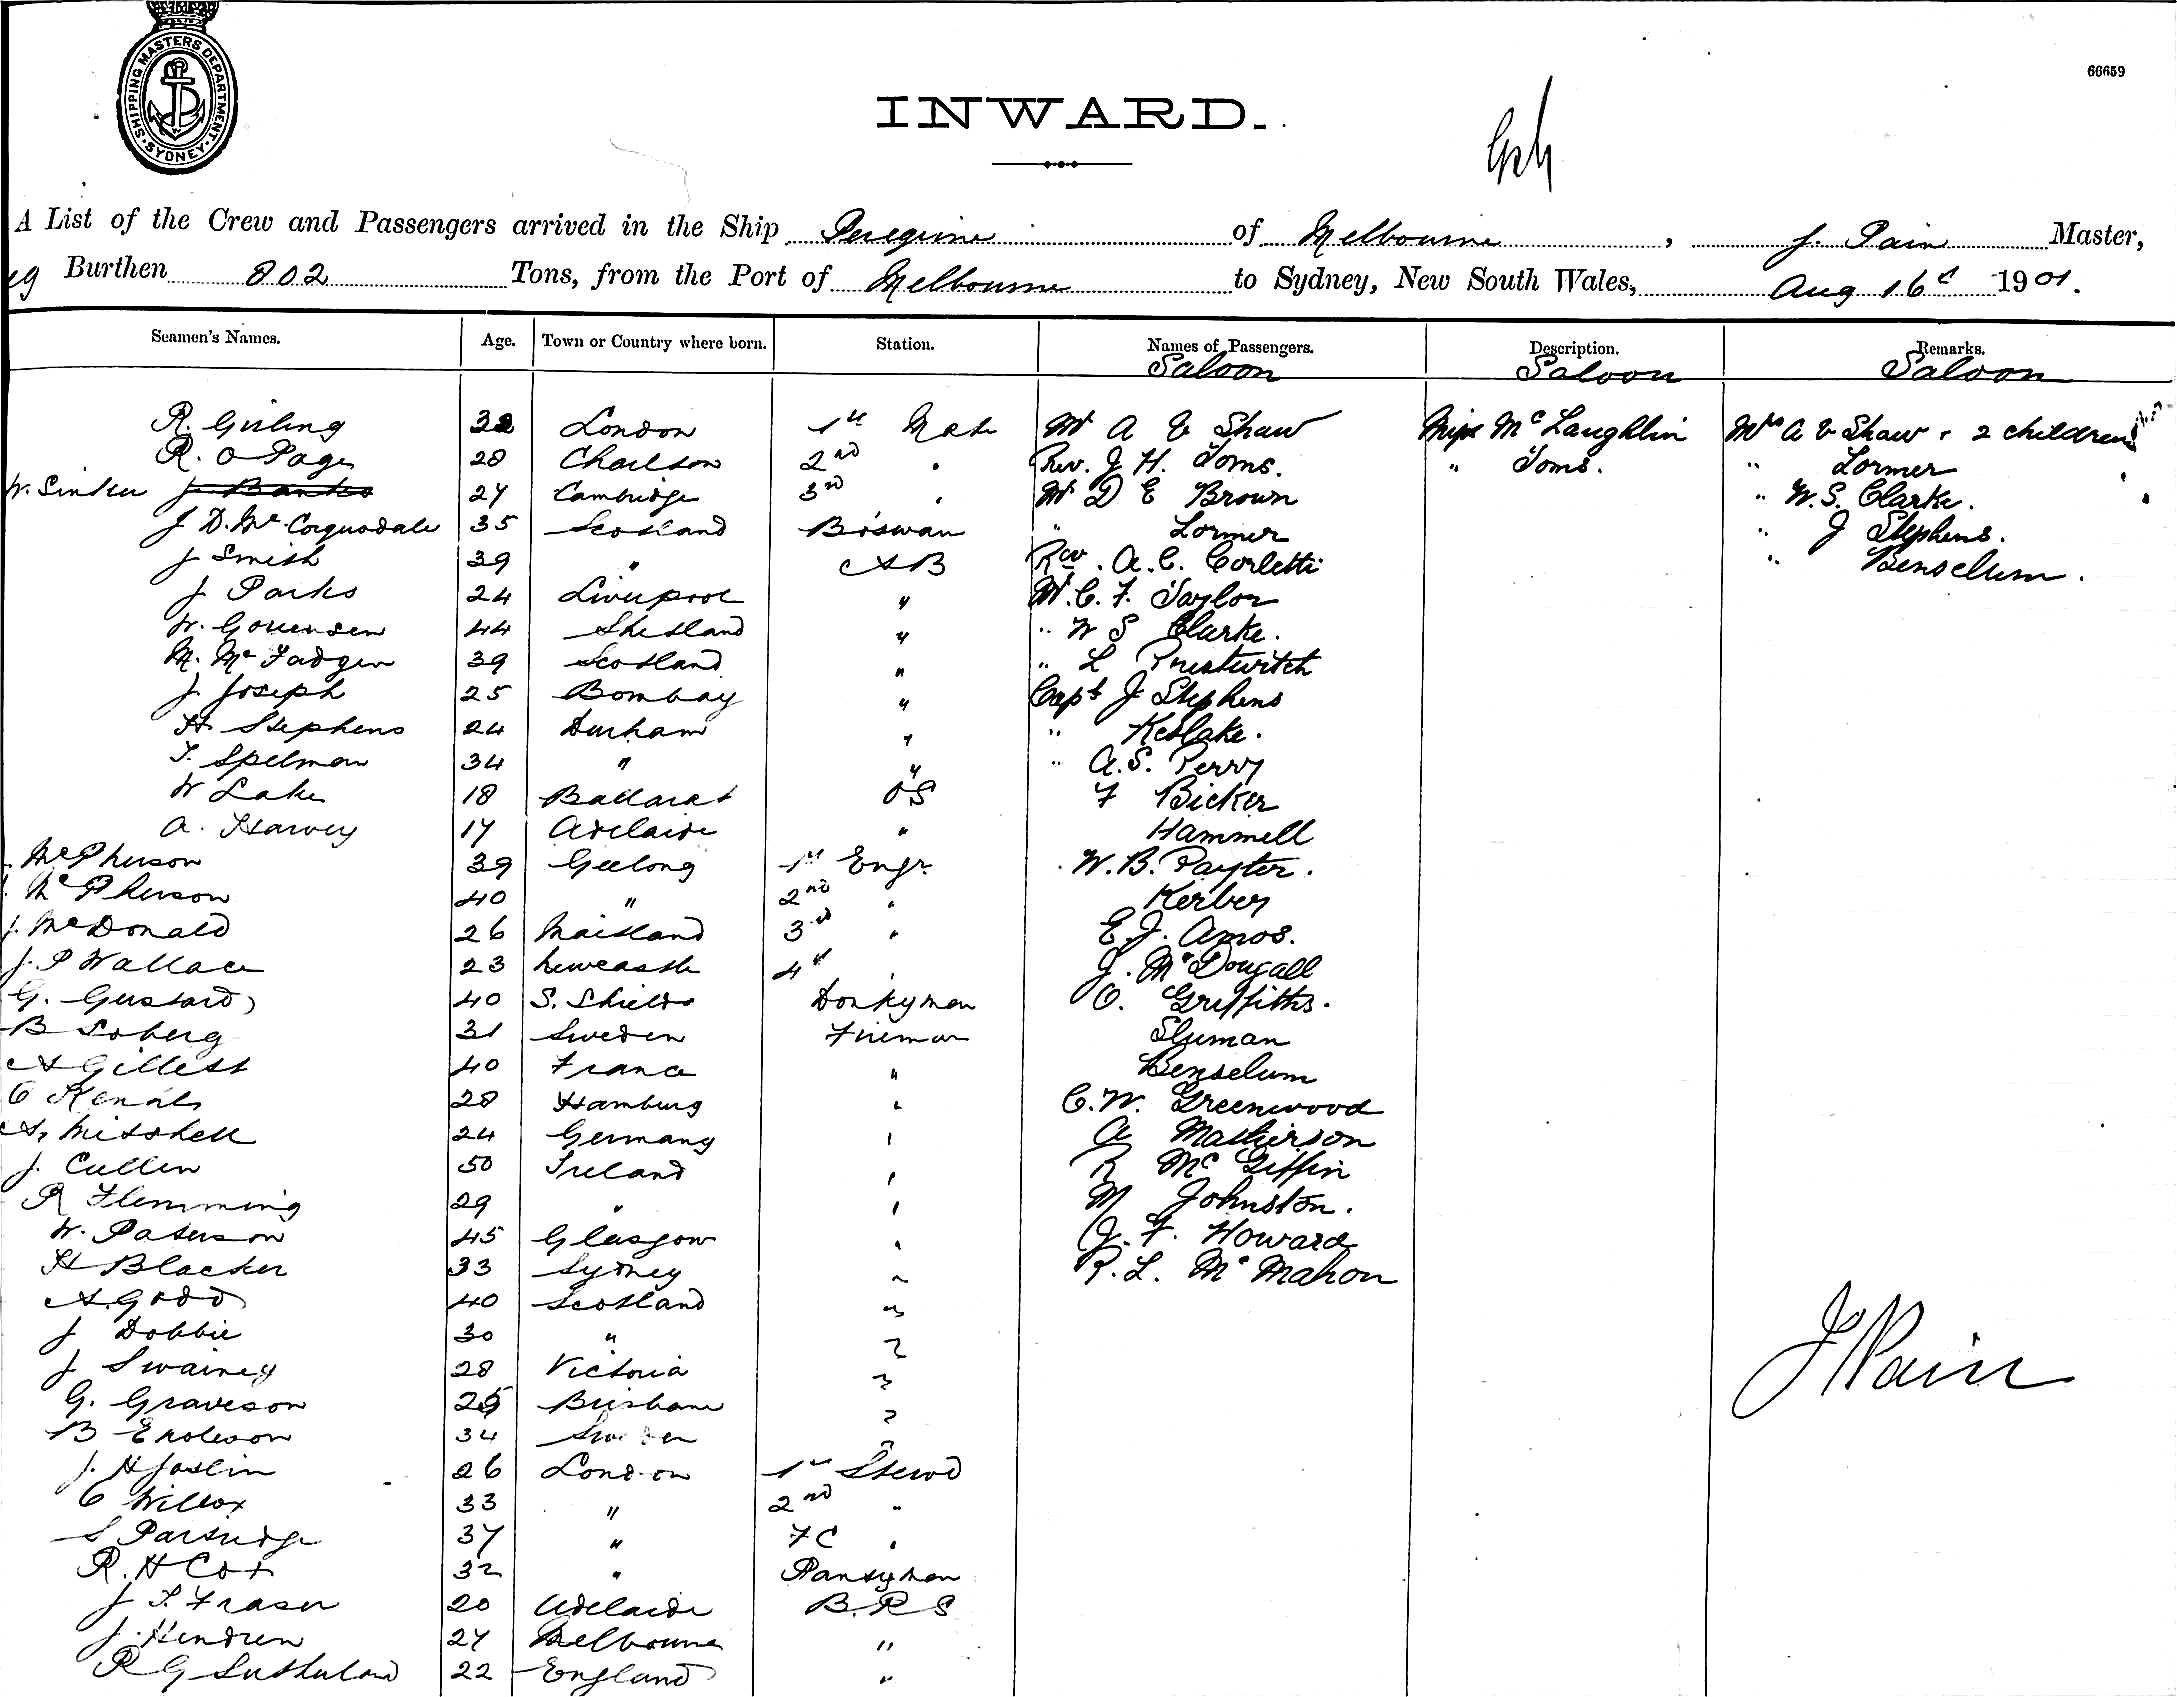 SHIPPING MASTERS DEPARTMENT
SYDNEY
66659
INWARD.
A List of the Crew and Passengers arrived in the Ship Peregrine of Melbourne, J. Pain Master,
Burthen 802 Tons, from the Port of Melbourne to Sydney, New South Wales, Aug 16 1901.
Seamen's Names. Age. Town or Country where born. Station. Names of Passengers. Description. Remarks.
Saloon Saloon Saloon
R. Girling 32 London 1st Mate Mr A E Shaw Miss McLaughlin Mrs A E Shaw & 2 children
R. O Page 28 Charlton 2nd " Rev. J H. Toms. " Toms. " Lormer
J. Banks 27 Cambridge 3rd " Mr D E Brown " W. S. Clarke.
J D. Mc Corquodale 35 Scotland Boswan " Lormer " J Stephens.
J Smith 39 " AB Rev. A. C. Corlette " Benselum.
J Parks 24 Liverpool " Mr. C. F. Taylor
W. 44 Shetland " " W S Clarke.
M. Mc Fadgen 39 Scotland " " L Prestwitch
J Joseph 25 Bombay " Capt J Stephens
H. Stephens 24 Durham " " Keslake.
T. Spelman 34 " " " A. S. Perry
W Lake 18 Ballarat OS F Bicker
A. Harvey 17 Adelaide " Hammell
McPherson 39 Geelong 1st Engr. W. B. Payter.
McPherson 40 " 2nd " Kerber
J. McDonald 26 Maitland 3rd " E. J. Amos.
J. P Wallace 23 Newcastle 4th " J. McDougall
G. Gustard 40 S. Shields Donkyman O. Griffiths.
B Soberg 31 Sweden Fireman Sluman
A Gillett 40 France " Benselum
C 28 Hamburg " C. W. Greenwood
A. Mitshell 24 Germany " A Matherson
J. Cullen 50 Ireland " R McGiffin
R Flemming 29 " " M Johnston.
W. Paterson 45 Glasgow " J. F. Howard
H Blacker 33 Sydney " R. L. McMahon
A. Godd 40 Scotland "
J Dobbie 30 " "
J Swainey 28 Victoria "
G. Graveson 25 Brisbane "
B 34 Sweden "
J. H Joslin 26 London 1st Stewd
C Willox 33 " 2nd "
S Partridge 37 " FC "
R. H Cox 32 " Pantryman
J T. Fraser 20 Adelaide B.R S
J. Hendren 27 Melbourne "
R G Sutherland 22 England "
J Pain